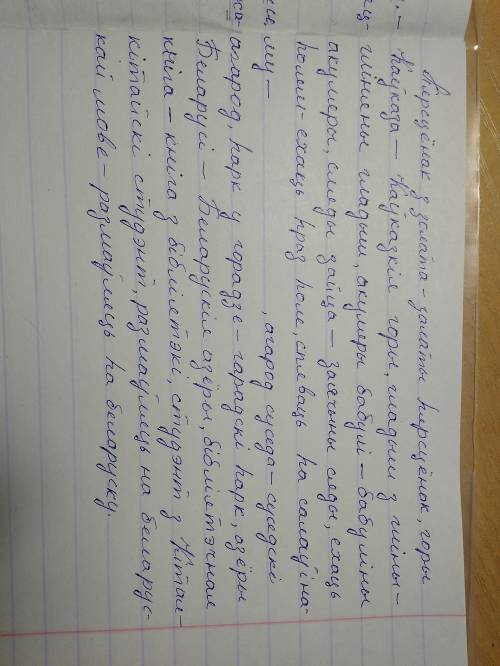 Пярсцёнак з золата - залаты пярсцёнак, горы
Каўказа – Каўказкія горы, гладыш з гліны –
гліняны гладыш, акуляры бабулі – бабуліны
акуляры, следы зайца – заячыны сяды, ехаць
полем – ехаць праз поле, спяваць па салаўіна-
му – , агарод суседа – суседскі
агарод, парк у горадзе – гарадскі парк, азёры
Беларусі – Беларускія азёры, бібліятэчная
кніга – кніга з бібліятэкі, студэнт з Кітая –
кітайскі студэнт, размаўляць на беларус-
кай мове – размаўляць па беларуску.